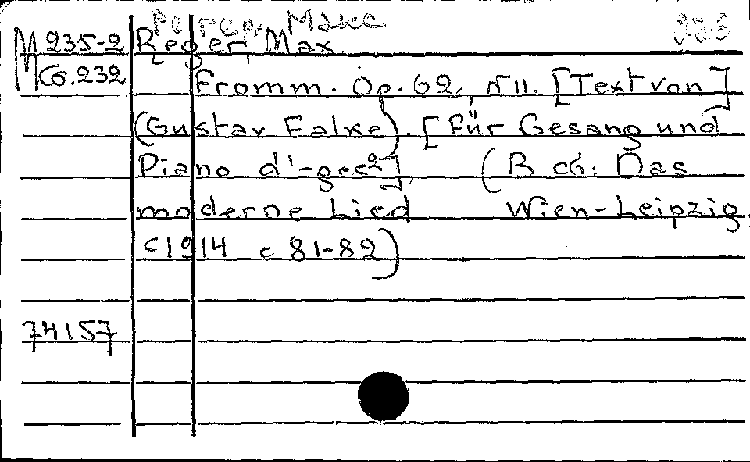 Регер, Макс
M 235-2 Reger, Max.
Сб. 232 Fromm. Op. 62, N 11. [Text von]
(Gustav Falke). [Für Gesang und
Piano d'-ges²]. (В сб. Das
moderne Lied Wien-Leipzig,
c1914 c 81-82)
74157